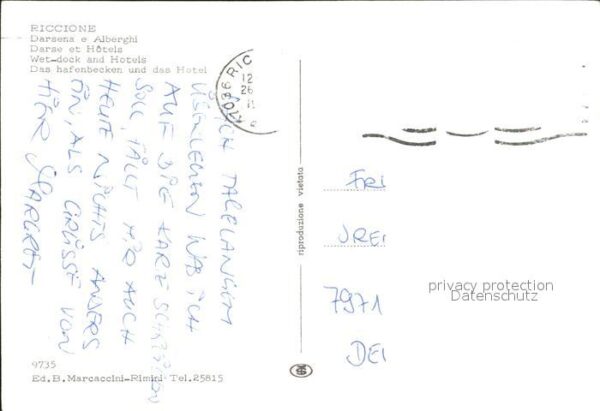 RICCIONE
Darsena e Alberghi
Darse et Hôtels
Wet-dock and Hotels
Das hafenbecken und das Hotel
47036 RIC
12
26
NACH TAGELANGEM
ÜBERLEGEN WAS ICH
AUF DIE KARTE SCHREIBEN
SOLL, FÄLLT MIR AUCH
HEUTE NICHTS ANDERS
EIN, ALS GRÜSSE VON
HIER MARGRET
riproduzione vietata
FRI
JREI
7971
DEI
privacy protection
Datenschutz
9735
Ed.B.Marcaccini-Rimini Tel.25815